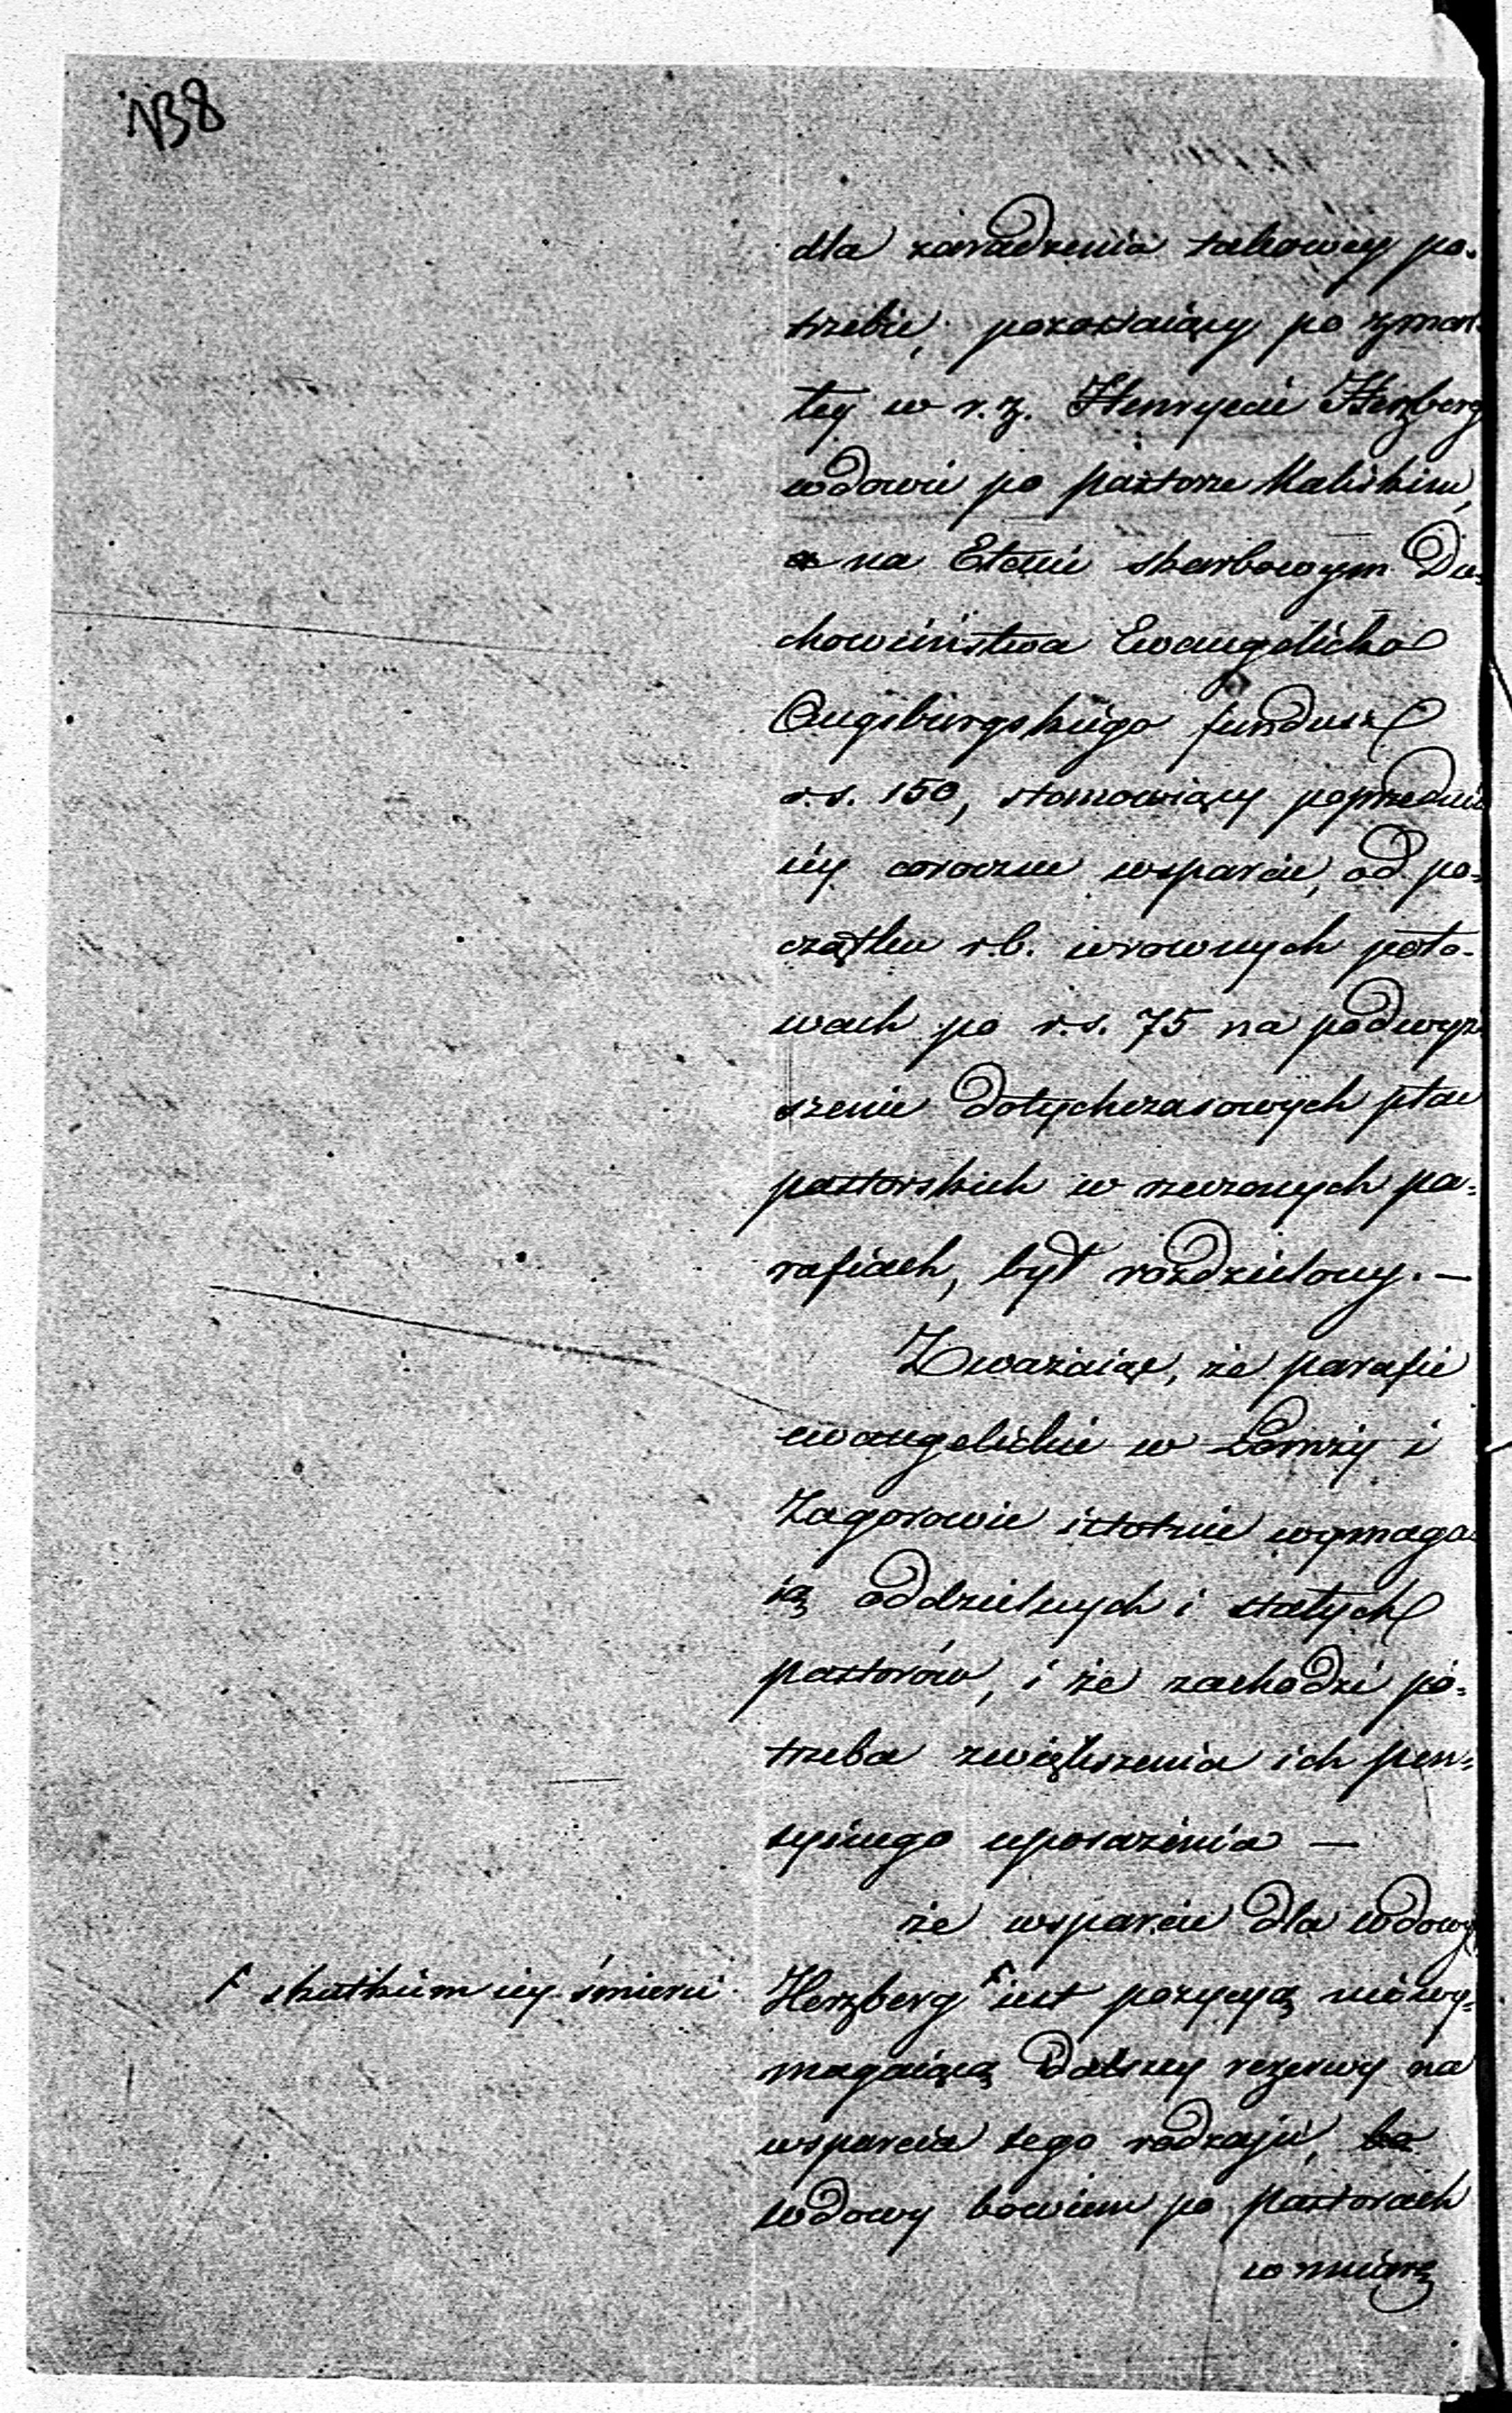 138
dla zaradzenia takowey po-
trzebie, pozostaiący po zmar-
łey w r. z. Henryecie Herzberg
wdowie po pastorze Kaliskim,
na Etacie skarbowym Du-
chowieństwa Ewangelicko
Augsburgskiego fundusz
r.s. 150, stanowiący poprzednio
iey coroczne wsparcie, od po-
czątku r.b. w rownych poło-
wach po r.s. 75 na podwyż-
szenie dotychczasowych płac
pastorskich w rzeczonych pa-
rafiach, był rozdzielony. —
Zważaiąc, że parafie
ewangelickie w Łomży i
Zagorowie istotnie wymaga-
ią oddzielnych i stałych
pastorów, i że zachodzi po-
trzeba zwiększenia ich pen-
syinego uposażenia —
że wsparcie dla wdowy
Herzberg F iest pozycyą nie wy-
F skutkiem iey śmierci
magaiącą dalszey rezerwy na
wsparcia tego rodzaju, ba
wdowy bowiem po pastorach
w miarę